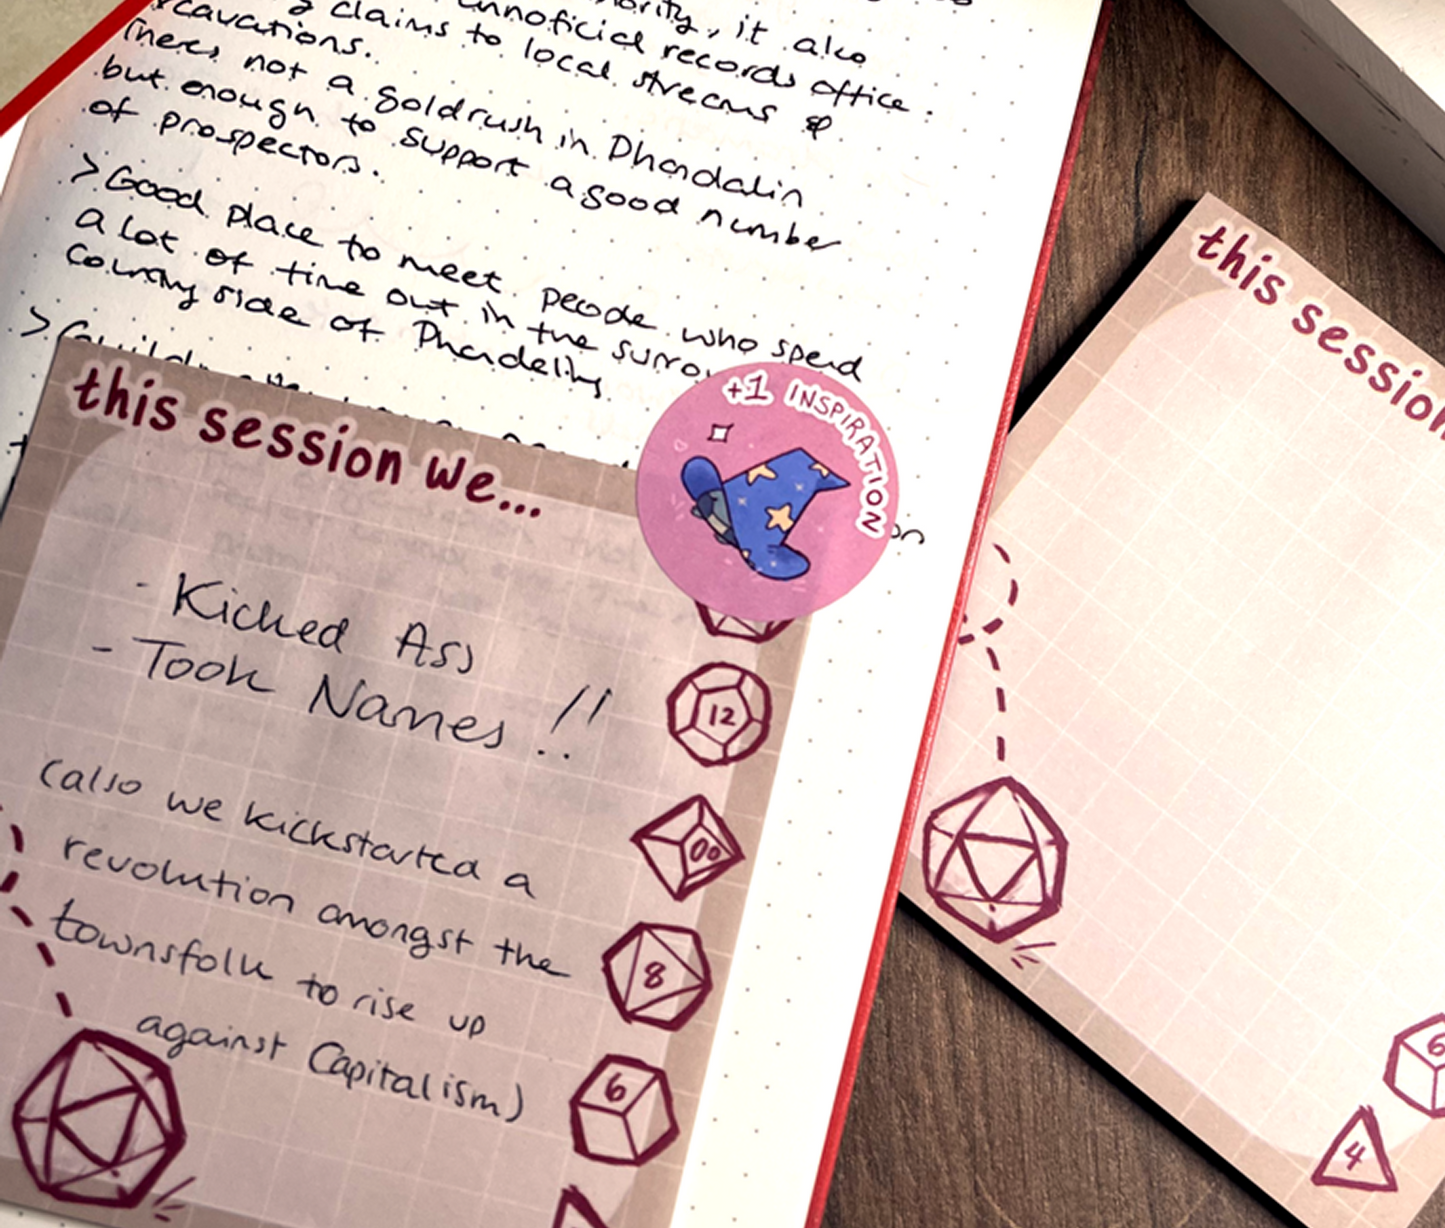 claims to unnoficial records office.
ority, it also
cavations. to local streams &
Theres not a goldrush in Phandalin
but enough to support a good number
of prospectors.
> Good place to meet people who spend
a lot of time out in the surro
Country side of Phandelin
>
on
this session we...
+1 INSPIRATION
- Kicked Ass
- Took Names!!
(also we kickstarted a
revolution amongst the
townsfolk to rise up
against Capitalism)
12
00
8
6
this session
6
4